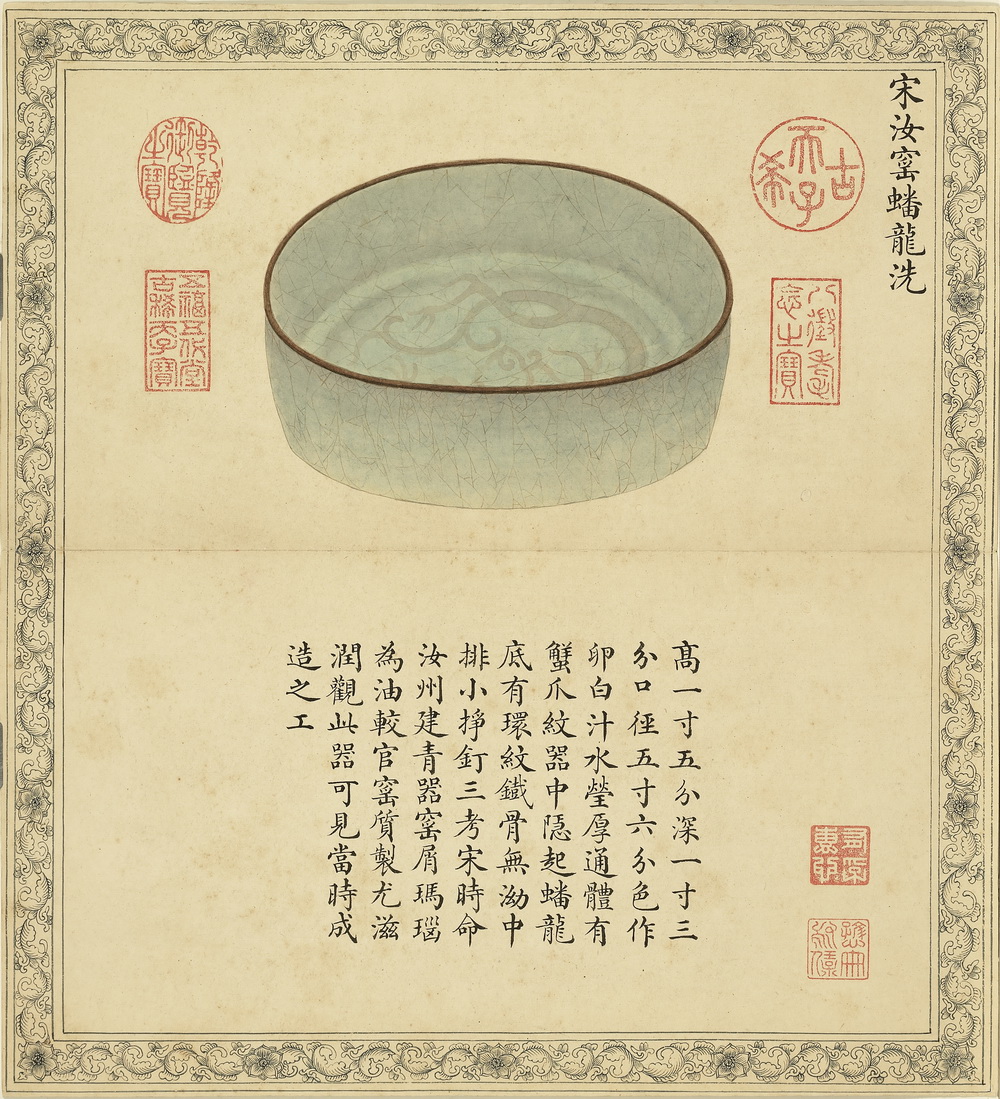 宋汝窑蟠龍洗
古希天子
八徵耄念之寶
乾隆御覽之寶
五福五代堂古稀天子寶
高一寸五分深一寸三
分口徑五寸六分色作
卵白汁水瑩厚通體有
蟹爪紋器中隠起蟠龍
底有環紋鐵骨無泑中
排小掙釘三考宋時命
汝州建青器窑屑瑪瑙
為油較官窑質製尤滋
潤觀此器可見當時成
造之工